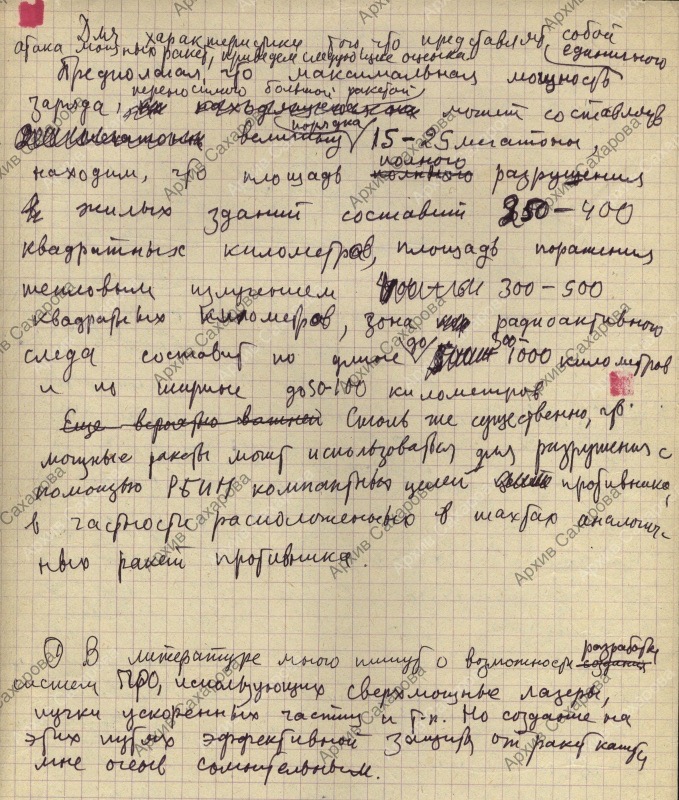 Для характеристики того, что представляет собой
атака мощных ракет, приведем следующие оценки единичного
Предполагая, что максимальная мощность
заряда, переносимого большой ракетой, может составлять
величину порядка 15-25 мегатонн,
находим, что площадь полного разрушения
жилых зданий составит 250-400
квадратных километров, площадь поражения
тепловым излучением 300-500
квадратных километров, зона радиоактивного
следа составит по длине до 500 1000 километров
и по ширине до 50-100 километров
Еще вероятно важней Столь же существенно, что
мощные ракеты могут использоваться для разрушения с
помощью РБИН компактных целей противника,
в частности расположенных в шахтах аналогич-
ных ракет противника.
1) В литературе много пишут о возможности разработки создания
систем ПРО, использующих сверхмощные лазеры,
пучки ускоренных частиц и т.п. Но создание на
этих путях эффективной защиты от ракет кажется
мне очень сомнительным.
Архив Сахарова